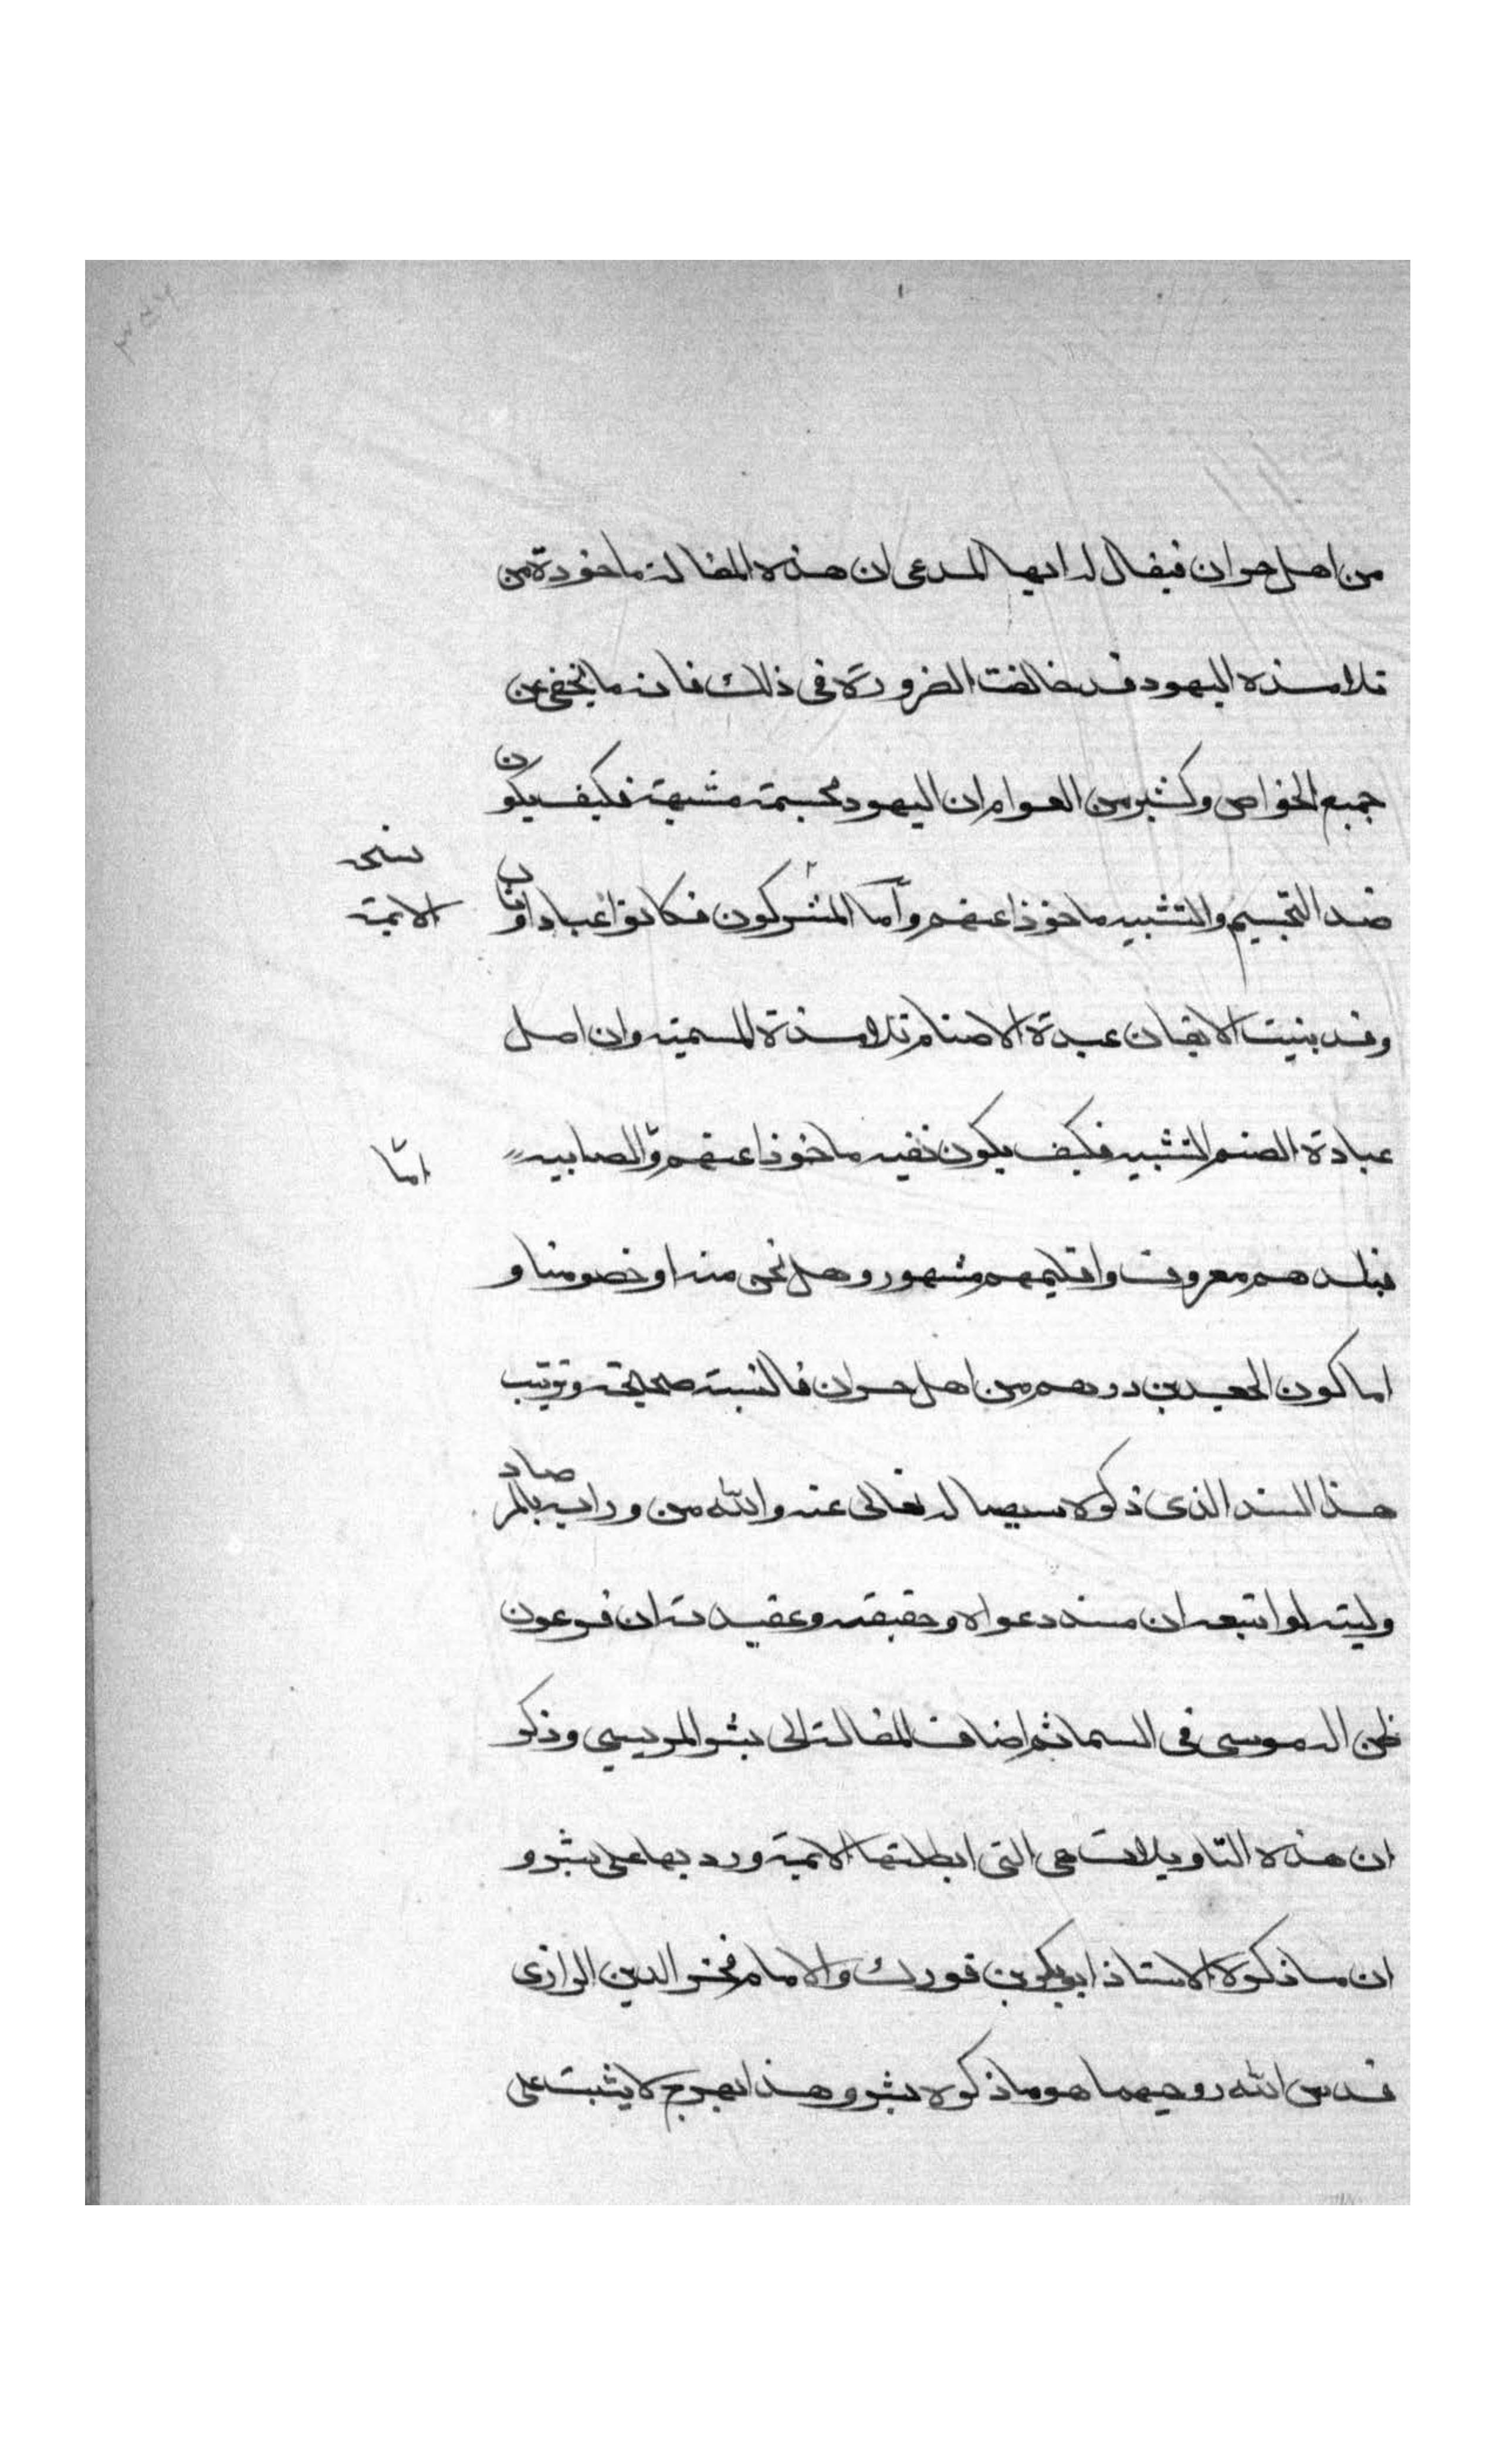 من اهل حران فيقال له ايها المدعى ان هذه المقالة ماخوذة من
تلامذه اليهود قد خالفت الضرورة فى ذلك فانه ما يخفى عن
جميع الخواص وكثير من العوام ان اليهود مجسمة مشبهة فكيف يكون
ضد التجسيم والتشبيه ماخوذا عنهم وأما المشركون فكانوا عبادا وثان
نسخه
الايمة
وقد بنيت الايمان عبدة الاصنام تلامذة السمنية وان اصل
عبادة الصنم التشبيه فكيف يكون نفيه ماخوذا عنهم والصابيه
امّا
فبلدهم معروف واقليمهم مشهور وهل نحن منه او خصومنا و
اما كون الجعد بن درهم من اهل حران فالنسبة صحيحة وترتيب
هذا السند الذى ذكره سيساله تعالى عنه والله من ورايه بالمرصاد
وليته لو اتبعه ان سند دعواه وحقيقة وعقيدته ان فرعون
ظن اله موسى فى السما ثم اضاف المقالة الى بشر المريسي وذكر
ان هذه التاويلات هى التى ابطلتها الايمة ورد بها على بشر و
ان ما ذكره الاستاذ ابو بكر بن فورك والامام فخر الدين الرازى
قدس الله روحيهما هو ما ذكره بشر وهذا بهرج لا يثبت على